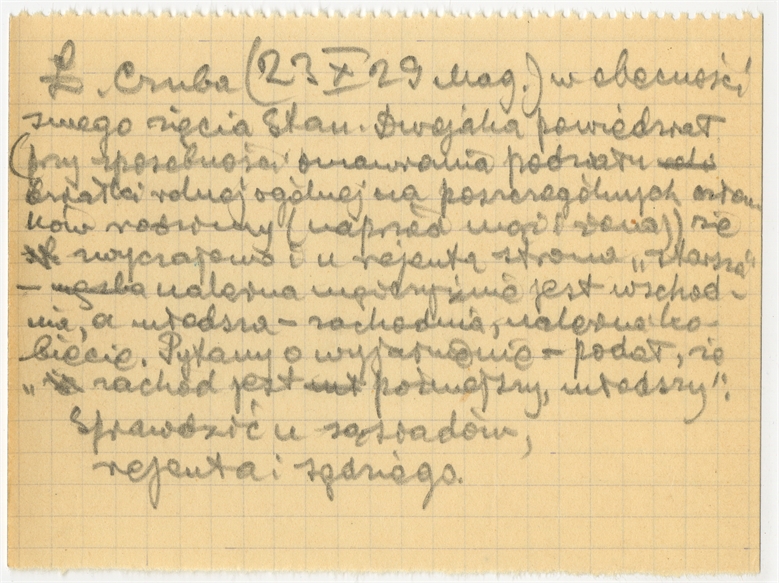 Ł. Czuba (23 X 29 Mag.) w obecności
swego zięcia Stan. Dwojaka powiedział
(przy sposobności omawiania podziału
działki rolnej ogólnej na poszczególnych człon
ków rodziny (naprzód mąż i żona)) się
zwyczajowo i u rejenta strona „starsza"
– należna mężczyźnie jest wschod-
nia, a młodsza – zachodnia, należna ko-
biecie. Pytany o wyjaśnienie – podał, że
„zachód jest późniejszy, młodszy".
Sprawdzić u sąsiadów,
rejenta i sędziego.